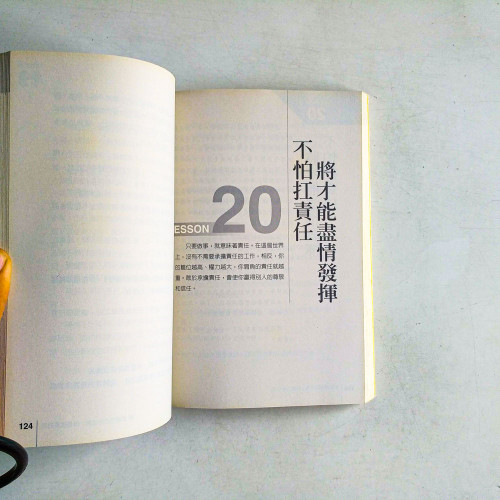 不怕扛責任
將才能盡情發揮
LESSON 20
只要做事，就意味着責任。在這個世界
上，沒有不需要承擔責任的工作，相反，你
的職位越高、權力越大，你肩負的責任就越
重。敢於承擔責任，會使你贏得別人的尊敬
和信任。
124